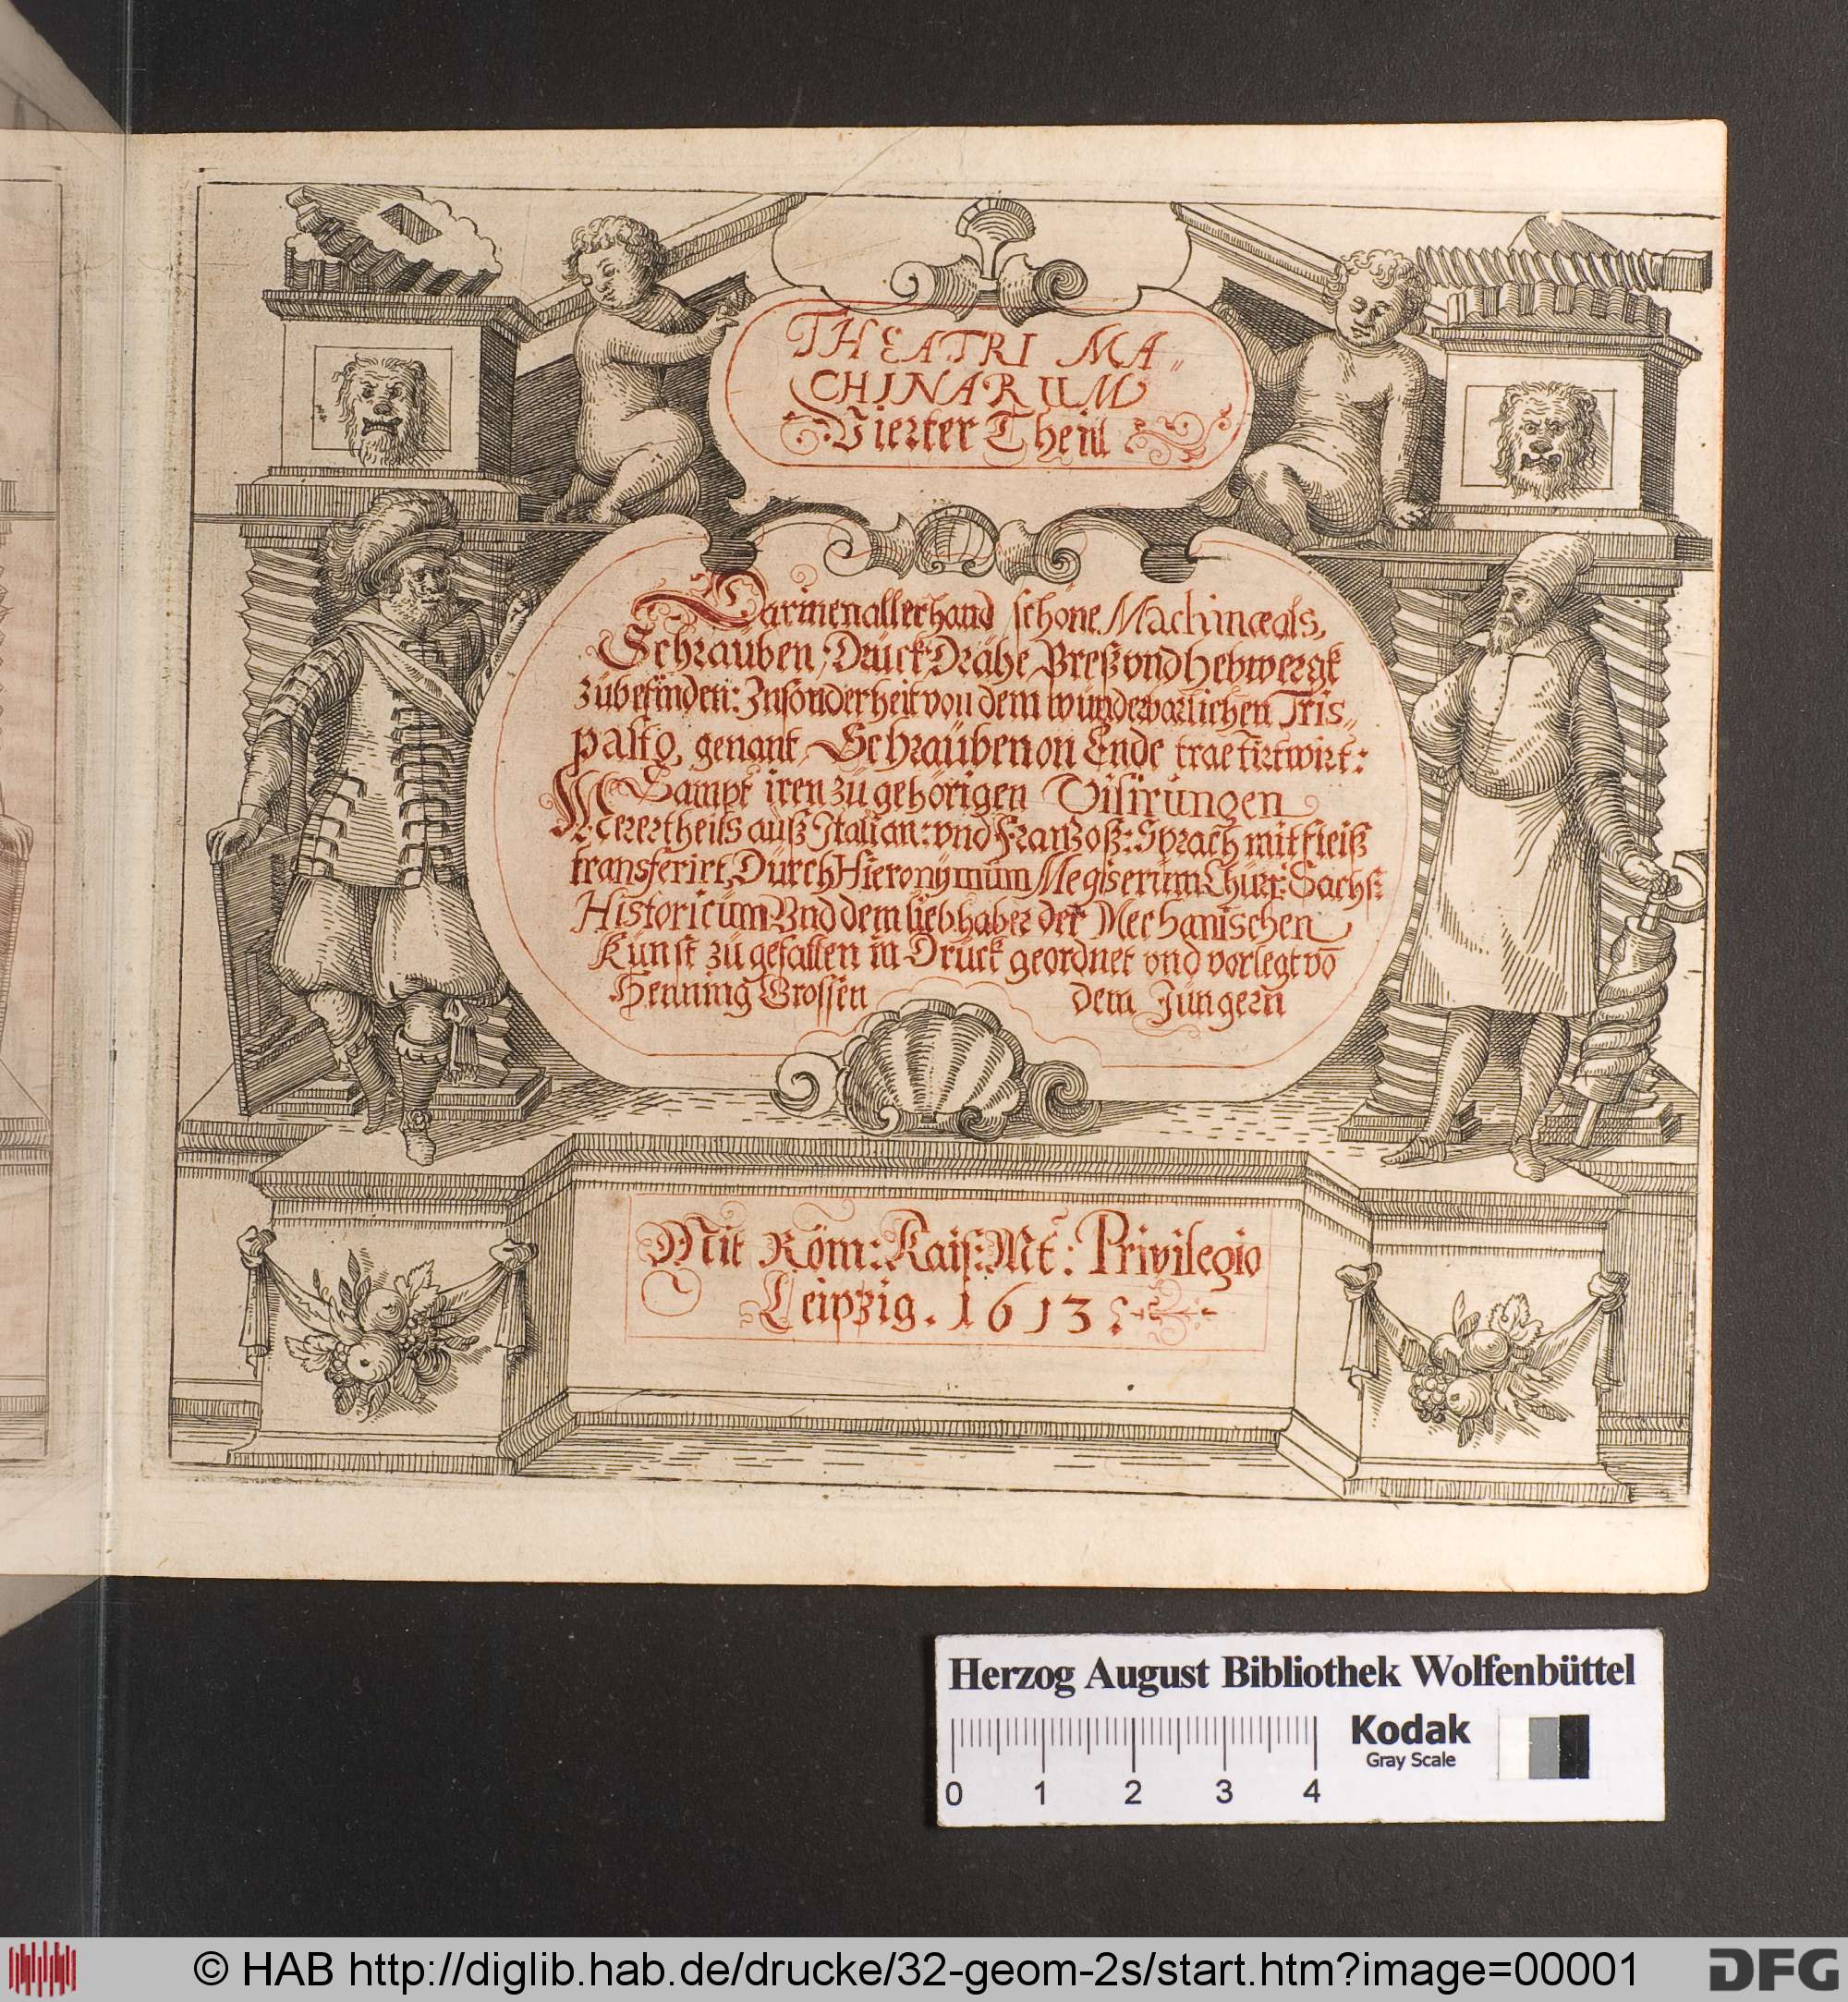 THEATRI MA-
CHINARUM
Vierter Theil
Darinen allerhand schöne Machinæ als,
Schrauben, Druck Drähe Preß vnd Hebwergk
zubefinden: Insonderheit von dem wunderbarlichen Tris-
pasto, genant Schrauben on Ende tractirt wirt:
Sampt iren zugehörigen Visirungen
Merertheils auß Italian: vnd Franzoß: Sprach mit fleiß
transferirt, Durch Hieronymum Megiserum Churf: Sachs:
Historicum Vnd dem liebhaber der Mechanischen
Kunst zu gefallen in Druck geordnet vnd vorlegt võ
Henning Grossen dem Jungern
Mit Röm: Kais: Mt: Privilegio
Leipzig. 1613
Herzog August Bibliothek Wolfenbüttel
Kodak
Gray Scale
0 1 2 3 4
© HAB http://diglib.hab.de/drucke/32-geom-2s/start.htm?image=00001
DFG